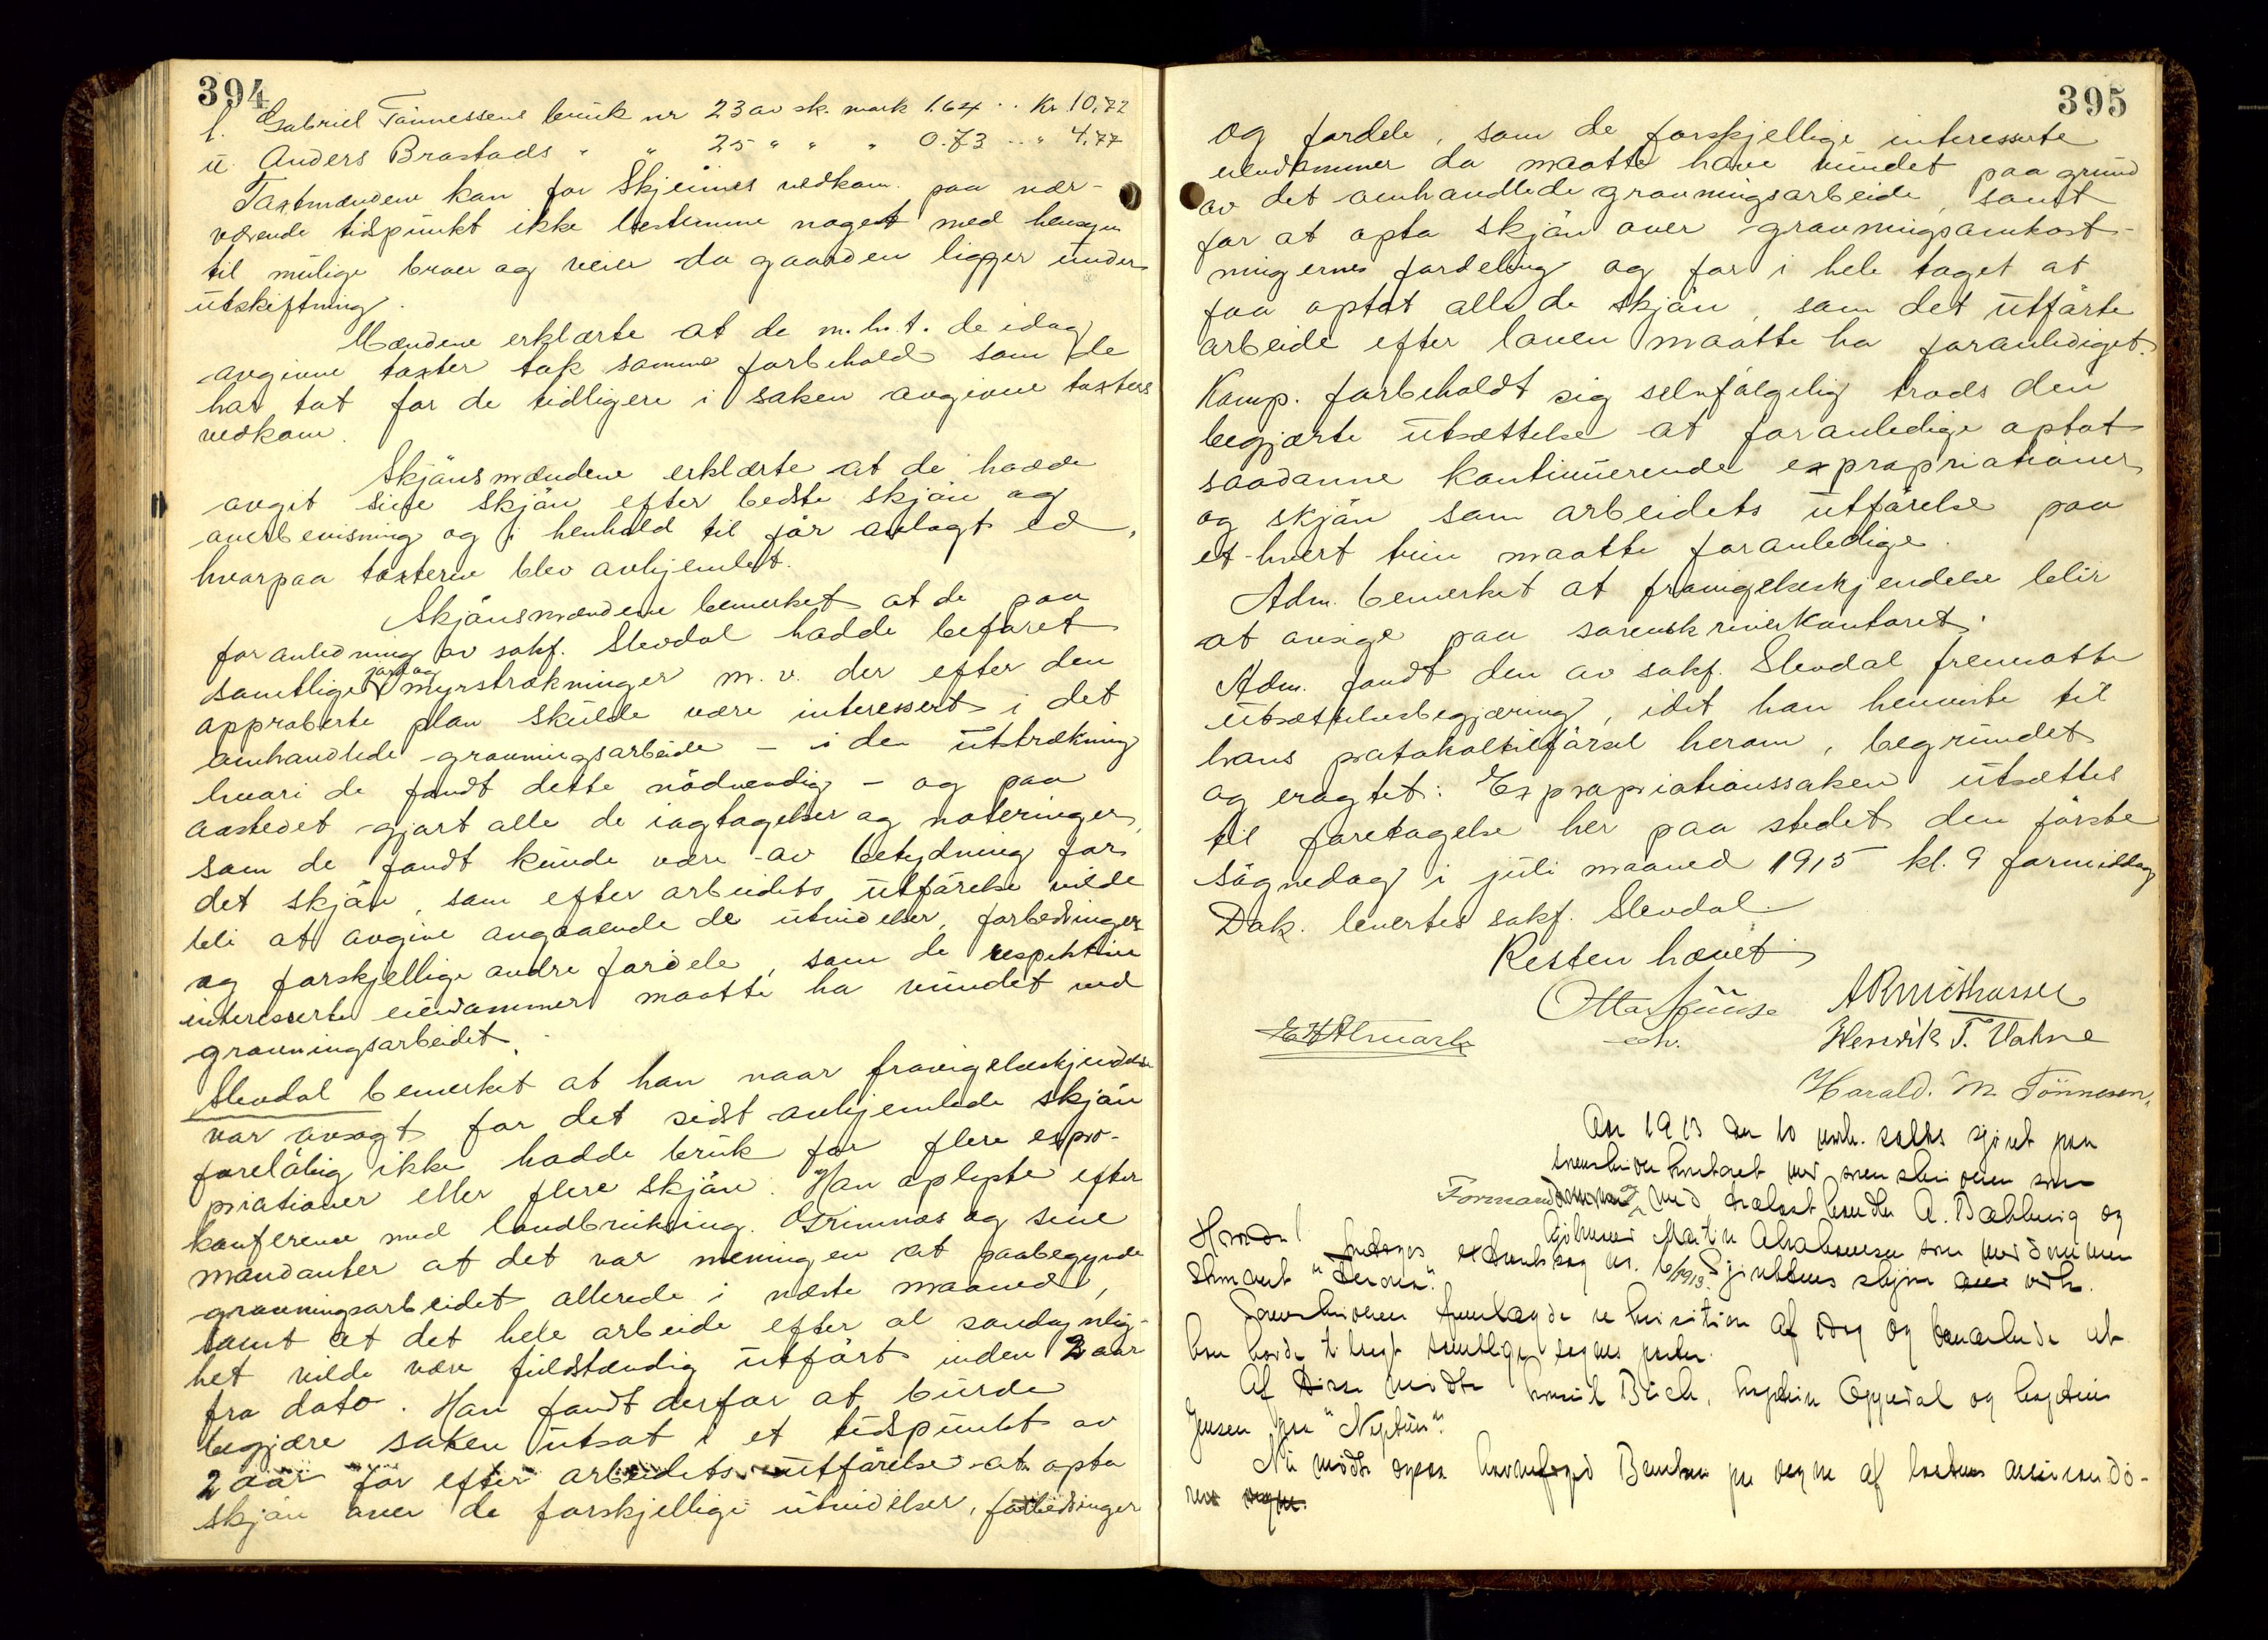 394
t. Gabriel Tönnessens bruk nr 23 av sk. mark 1.64 .. Kr. 10,72
u. Anders Brastads " " 25 " " " 0.73 ... " 4,77
Taxtmændene kan for Skjeiines vedkom. paa nær-
værende tidspunkt ikke bestemme noget med hensyn
til mulige broer og veier da gaarden ligger under
utskiftning.
Mændene erklærte at de m.h.t. de idag
avgivne taxter tok samme forbehold som de
har tat for de tidligere i saken avgivne taxters
vedkom.
Skjönsmændene erklærte at de hadde
avgit sine skjön efter bedste skjön og
overbevisning og i henhold til för avlagt ed,
hvorpaa taxterne blev avhjemlet.
Skjönsmændene bemerket at de paa
foranledning av sakf. Slevdal hadde befaret
samtlige jord og myrstrækninger m.v. der efter den
approberte plan skulde være interessert i det
omhandlede gravningsarbeide - i den utstrækning
hvori de fandt dette nödvendig - og paa
aastedet gjort alle de iagtagelser og noteringer,
som de fandt kunde være av betydning for
det skjön, som efter arbeidets utförelse vilde
bli at avgive angaaende de utvidelser, forbedringer
og forskjellige andre fordele, som de respektive
interesserte eiendommer maatte ha vundet ved
gravningsarbeidet.
Slevdal bemerket at han naar fravigelseskjendelse
var avsagt for det sidst avhjemlede skjön
forelöbig ikke hadde bruk for flere expro-
priationer eller flere skjön. Han oplyste efter
konferense med landbruksing. Grimnes og sine
mandanter at det var meningen at paabegynde
gravningsarbeidet allerede i næste maaned,
samt at det hele arbeide efter al sandsynlig-
het vilde være fuldstændig utfört inden 2 aar
fra dato. Han fandt derfor at burde
begjære saken utsat i et tidspunkt av
2 aar for efter arbeidets utförelse at opta
skjön over de forskjellige utvidelser, forbedringer
395
og fordele, som de forskjellige interesserte
eiendommer da maatte have vundet paa grund
av det omhandlede gravningsarbeide, samt
for at opta skjön over gravningsomkost-
ningernes fordeling og for i hele taget at
faa optat alle de skjön, som det utförte
arbeide efter loven maatte ha foranlediget.
Komp. forbeholdt sig selvfölgelig trods den
begjærte utsættelse at foranledige optat
saadanne kontinuerende expropriationer
og skjön som arbeidets utförelse paa
et hvert trin maatte foranledige.
Adm. bemerket at fravigelseskjendelse blir
at avsige paa sorenskriverkontoret.
Adm. fandt den av sakf. Slevdal fremsatte
utsættelsesbegjæring, idet han henviste til
hans protokoltilförsel herom, begrundet
og eragtet: Expropriationssaken utsættes
til foretagelse her paa stedet den förste
sögnedag i juli maaned 1915 kl. 9 formiddag
Dok. levertes sakf. Slevdal.
Retten hævet
Otto
Henrik T. Vatne
Harald. M. Tönnesen.
Aar 1913 den 10 novbr. sattes sjöret paa
sorenskriverkontoret med sorenskriveren som
Formand med A. og
Martin Abrahamsen som meddommere
Hvorda! foretoges extraretssag nr. 6/1913. Sjörettens skjön vedk.
"".
Sorenskriveren fremlagde rekvisition af idag og bemærkede at
han havde tilsagt samtlige sagens parter.
Af disse mödte konsul Büch, kaptein Oppedal og kaptein
Jensen paa "Neptun".
Nu mödte ogsaa havnefoged paa vegne af lastens